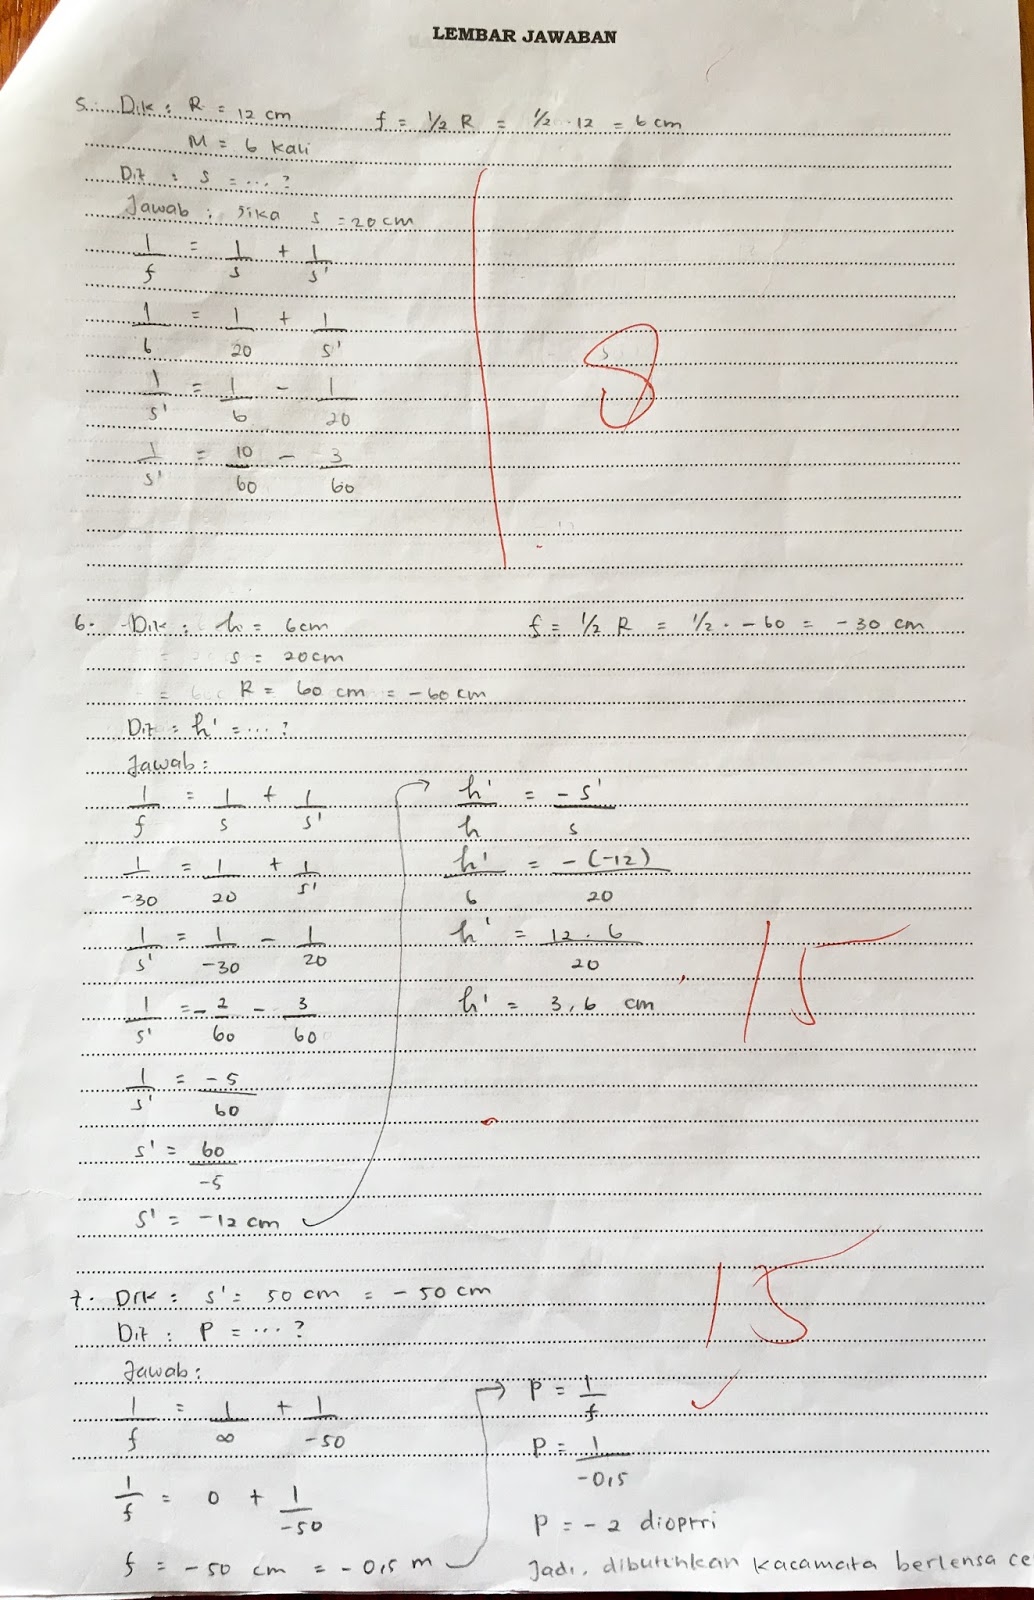 LEMBAR JAWABAN
5. Dik : R = 12 cm f = 1/2 R = 1/2 . 12 = 6 cm
M = 6 kali
Dit : s = ... ?
Jawab : Jika s = 20 cm
1/f = 1/s + 1/s'
1/6 = 1/20 + 1/s'
1/s' = 1/6 - 1/20
1/s' = 10/60 - 3/60
8
6. Dik : h = 6 cm f = 1/2 R = 1/2 . -60 = -30 cm
s = 20 cm
R = 60 cm = -60 cm
Dit : h' = ... ?
Jawab :
1/f = 1/s + 1/s'
1/-30 = 1/20 + 1/s'
1/s' = 1/-30 - 1/20
1/s' = -2/60 - 3/60
1/s' = -5/60
s' = 60/-5
s' = -12 cm
h'/h = -s'/s
h'/6 = -(-12)/20
h' = 12 . 6/20
h' = 3,6 cm
15
7. Dik : s' = 50 cm = -50 cm
Dit : P = ... ?
Jawab :
1/f = 1/∞ + 1/-50
1/f = 0 + 1/-50
f = -50 cm = -0,5 m
P = 1/f
P = 1/-0,5
P = -2 dioptri
Jadi, dibutuhkan kacamata berlensa ce
15